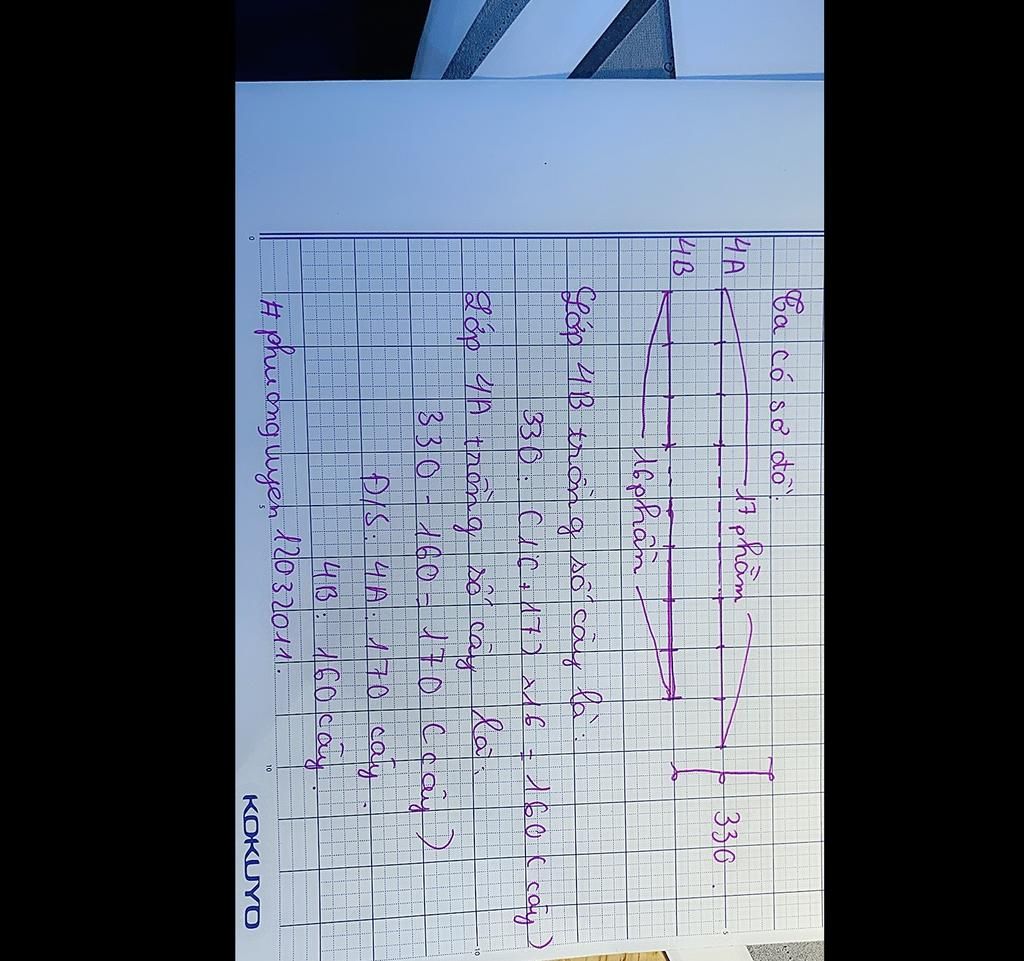 Ta có sơ đồ:
17 phần
4A
330.
4B
16 phần
Lớp 4B trồng số cây là:
330: (16+17) x16 = 160 (cây)
Lớp 4A trồng số cây là:
330 - 160 = 170 (cây)
Đ/S: 4A: 170 cây.
4B: 160 cây.
# phuonguyen12032011.
KOKUYO
0
5
10
5
10